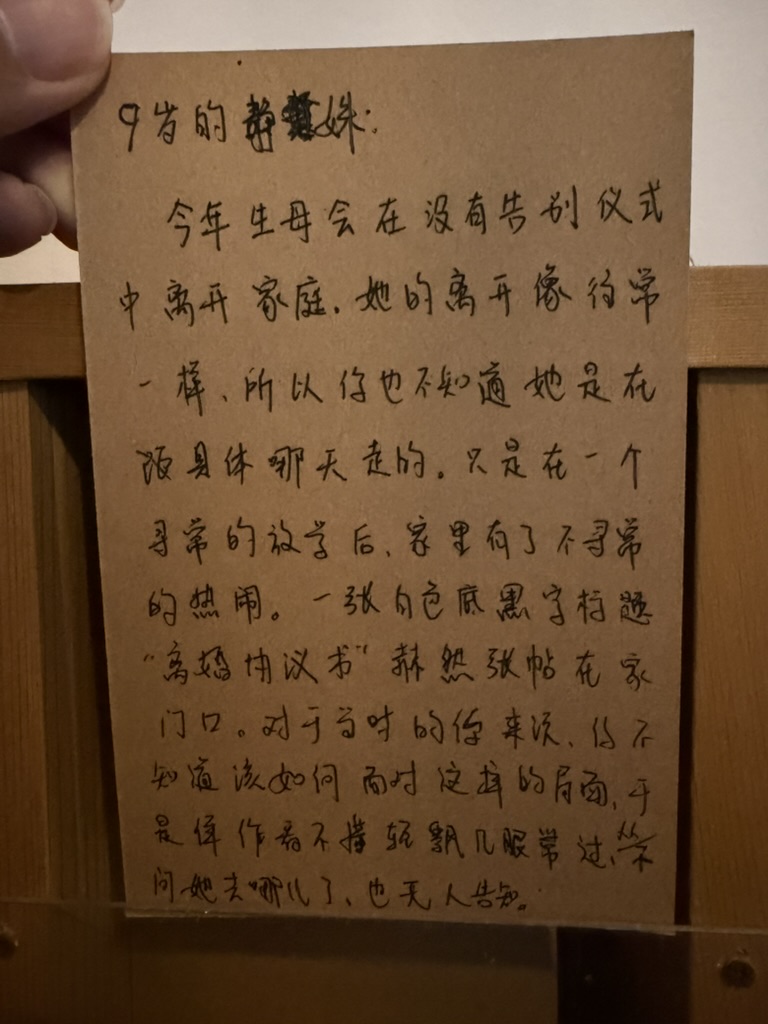 9岁的静姝:
今年生母会在没有告别仪式
中离开家庭。她的离开像往常
一样、所以你也不知道她是在
具体哪天走的。只是在一个
寻常的放学后、家里有了不寻常
的热闹。一张白色底黑字标题
“离婚协议书”赫然张帖在家
门口。对于当时的你来说、你不
知道该如何面对这样的局面、于
是佯作看不懂轻飘几眼带过、从不
问她去哪儿了、也无人告知。